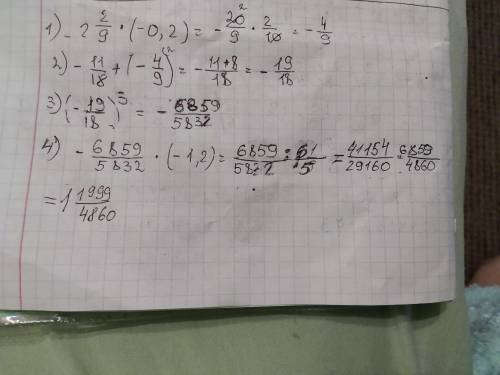 1) - 2 2/9 · (-0,2) = - 20²/9 · 2/10 = - 4/9
2) - 11/18 + (- 4/9)² = - 11+8/18 = - 19/18
3) (- 19/18)³ = - 6859/5832
4) - 6859/5832 · (-1,2) = 6859/5832 · 6/5 = 41154/29160 = 6859/4860
= 1 1999/4860